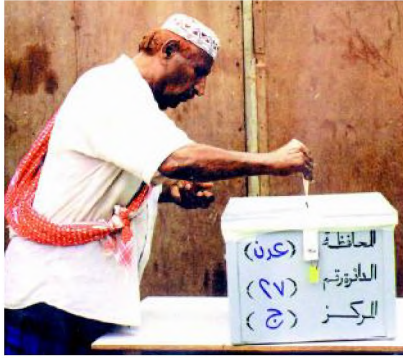 المحافظة (عدن)
الدائرة رقم (٢٧)
المركز (ج)